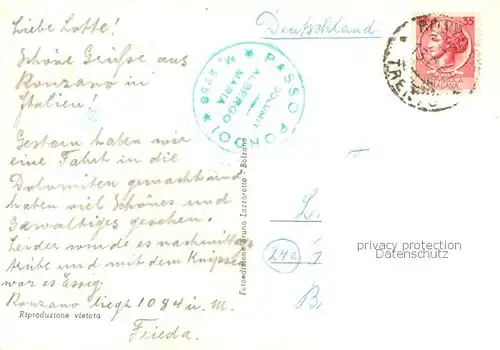 Liebe Lotte!
Schöne Grüße aus
Ronzano in
Italien!
Gestern haben wir
eine Fahrt in die
Dolomiten gemacht und
haben viel Schönes und
Gewaltiges gesehen.
Leider wurde es nachmittags
trübe und mit dem Knipsen
war es Essig.
Ronzano liegt 1084 ü. M.
Frieda.
Riproduzione vietata
Fotoedizione Bruno Lazzarotto - Bolzano
Deutschland
PASSO PORDOI
ALBERGO
MARIA
DOLOMITI
35
REPUBBLICA
ITALIANA
L.
24a
B.
privacy protection
Datenschutz